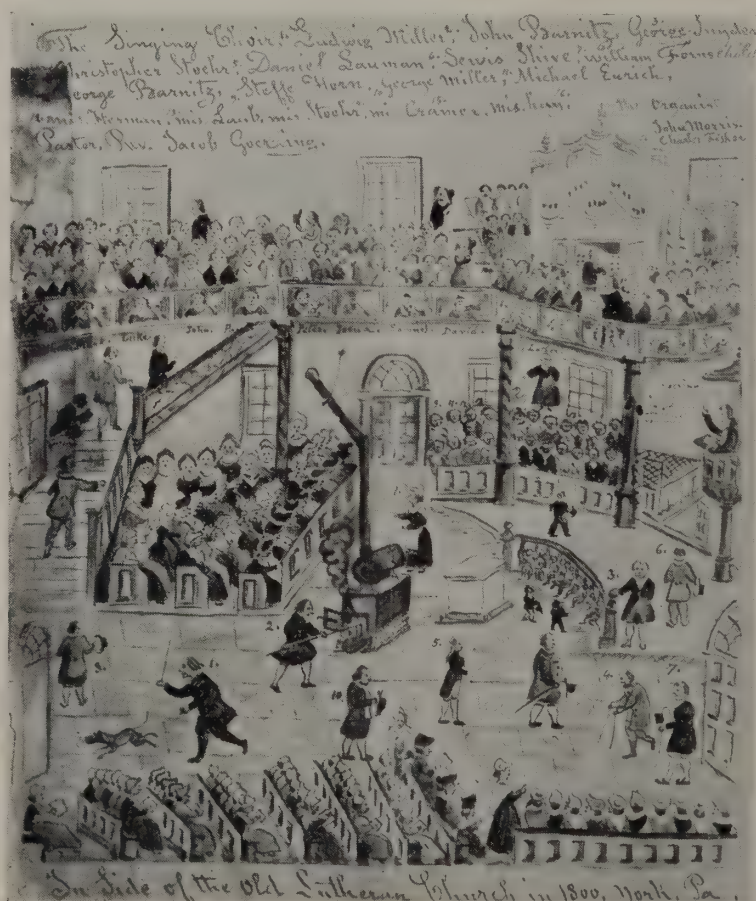 The Singing Choir, Ludwig Miller, John Barnitz, George Snyder
Christopher Stoehr, Daniel Lauman, Lewis Shive, william
George Barnitz, Steffe Horn, George Miller, Michael Eurich,
Herman, mis Laub, mis Stoehr, mi Cramer, mis
The Organist
John Morris
Charles Fisher
Pastor, Rev. Jacob Goering.
Luke John, Peter James Samuel David
1.
2.
3.
4.
5.
6.
7.
10.
In Side of the Old Lutheran Church in 1800, York, Pa.